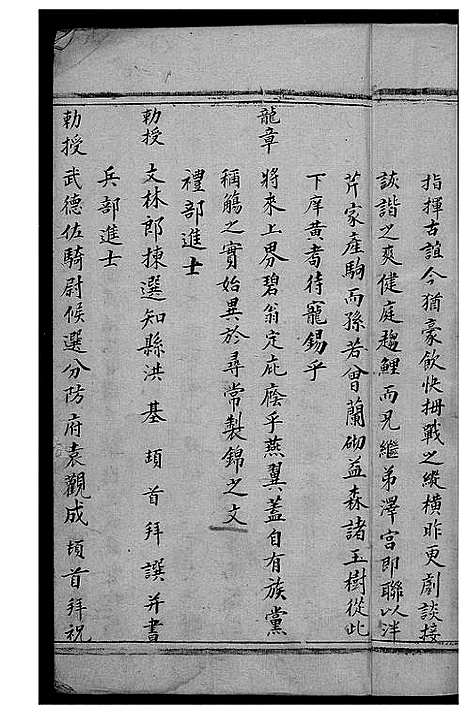 指揮古誼今猶豪飲快拇戰之縱橫昨更劇談接
詼諧之爽健庭趨鯉而兄繼弟澤宮即聯以泮
芹家産駒而孫若曾蘭砌益森諸玉樹從此
下庠黃耈待寵錫乎
龍章 將來上界碧翁定庇廕乎燕翼蓋自有族黨
稱觴之實始異於尋常製錦之文
禮部進士
勅授 文林郎揀選知縣洪基 頓首拜譔并書
兵部進士
勅授 武德佐騎尉候選分防府袁觀成 頓首拜祝